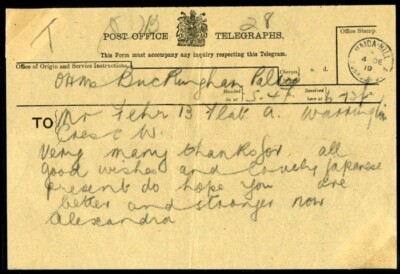 T
28
POST OFFICE TELEGRAPHS.
This Form must accompany any inquiry respecting this Telegram.
Office Stamp.
Office of Origin and Service Instructions.
Charges
s. d.
MAIDA-HILL
4 DE
19
OHMS Buckingham Palace
Handed in at
Received here at
TO
Mr Fehr 13 Flat A. Warrington
Cresc W.
Very many thanks for all
good wishes and lovely Japanese
present do hope you are
better and stronger now
Alexandra